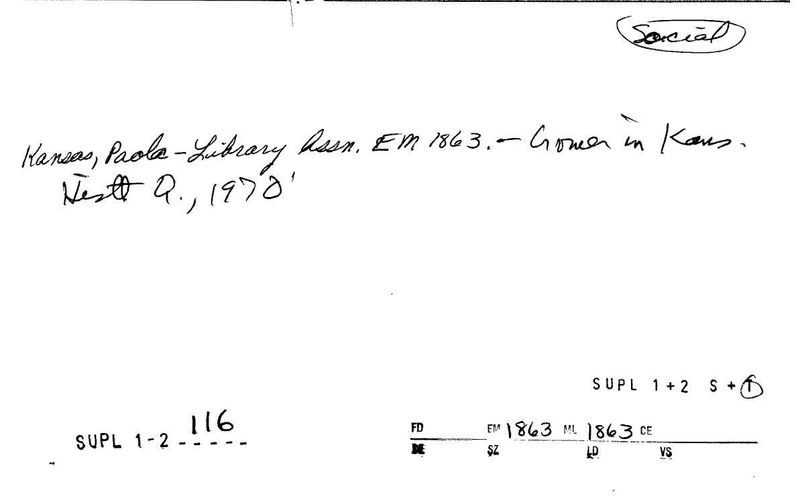 Social
Kansas, Paola - Library Assn. EM 1863. - Gower in Kans.
Hist Q., 1970
SUPL 1+2 S + T
SUPL 1-2 116
FD EM 1863 ML 1863 CE
DE SZ LD VS